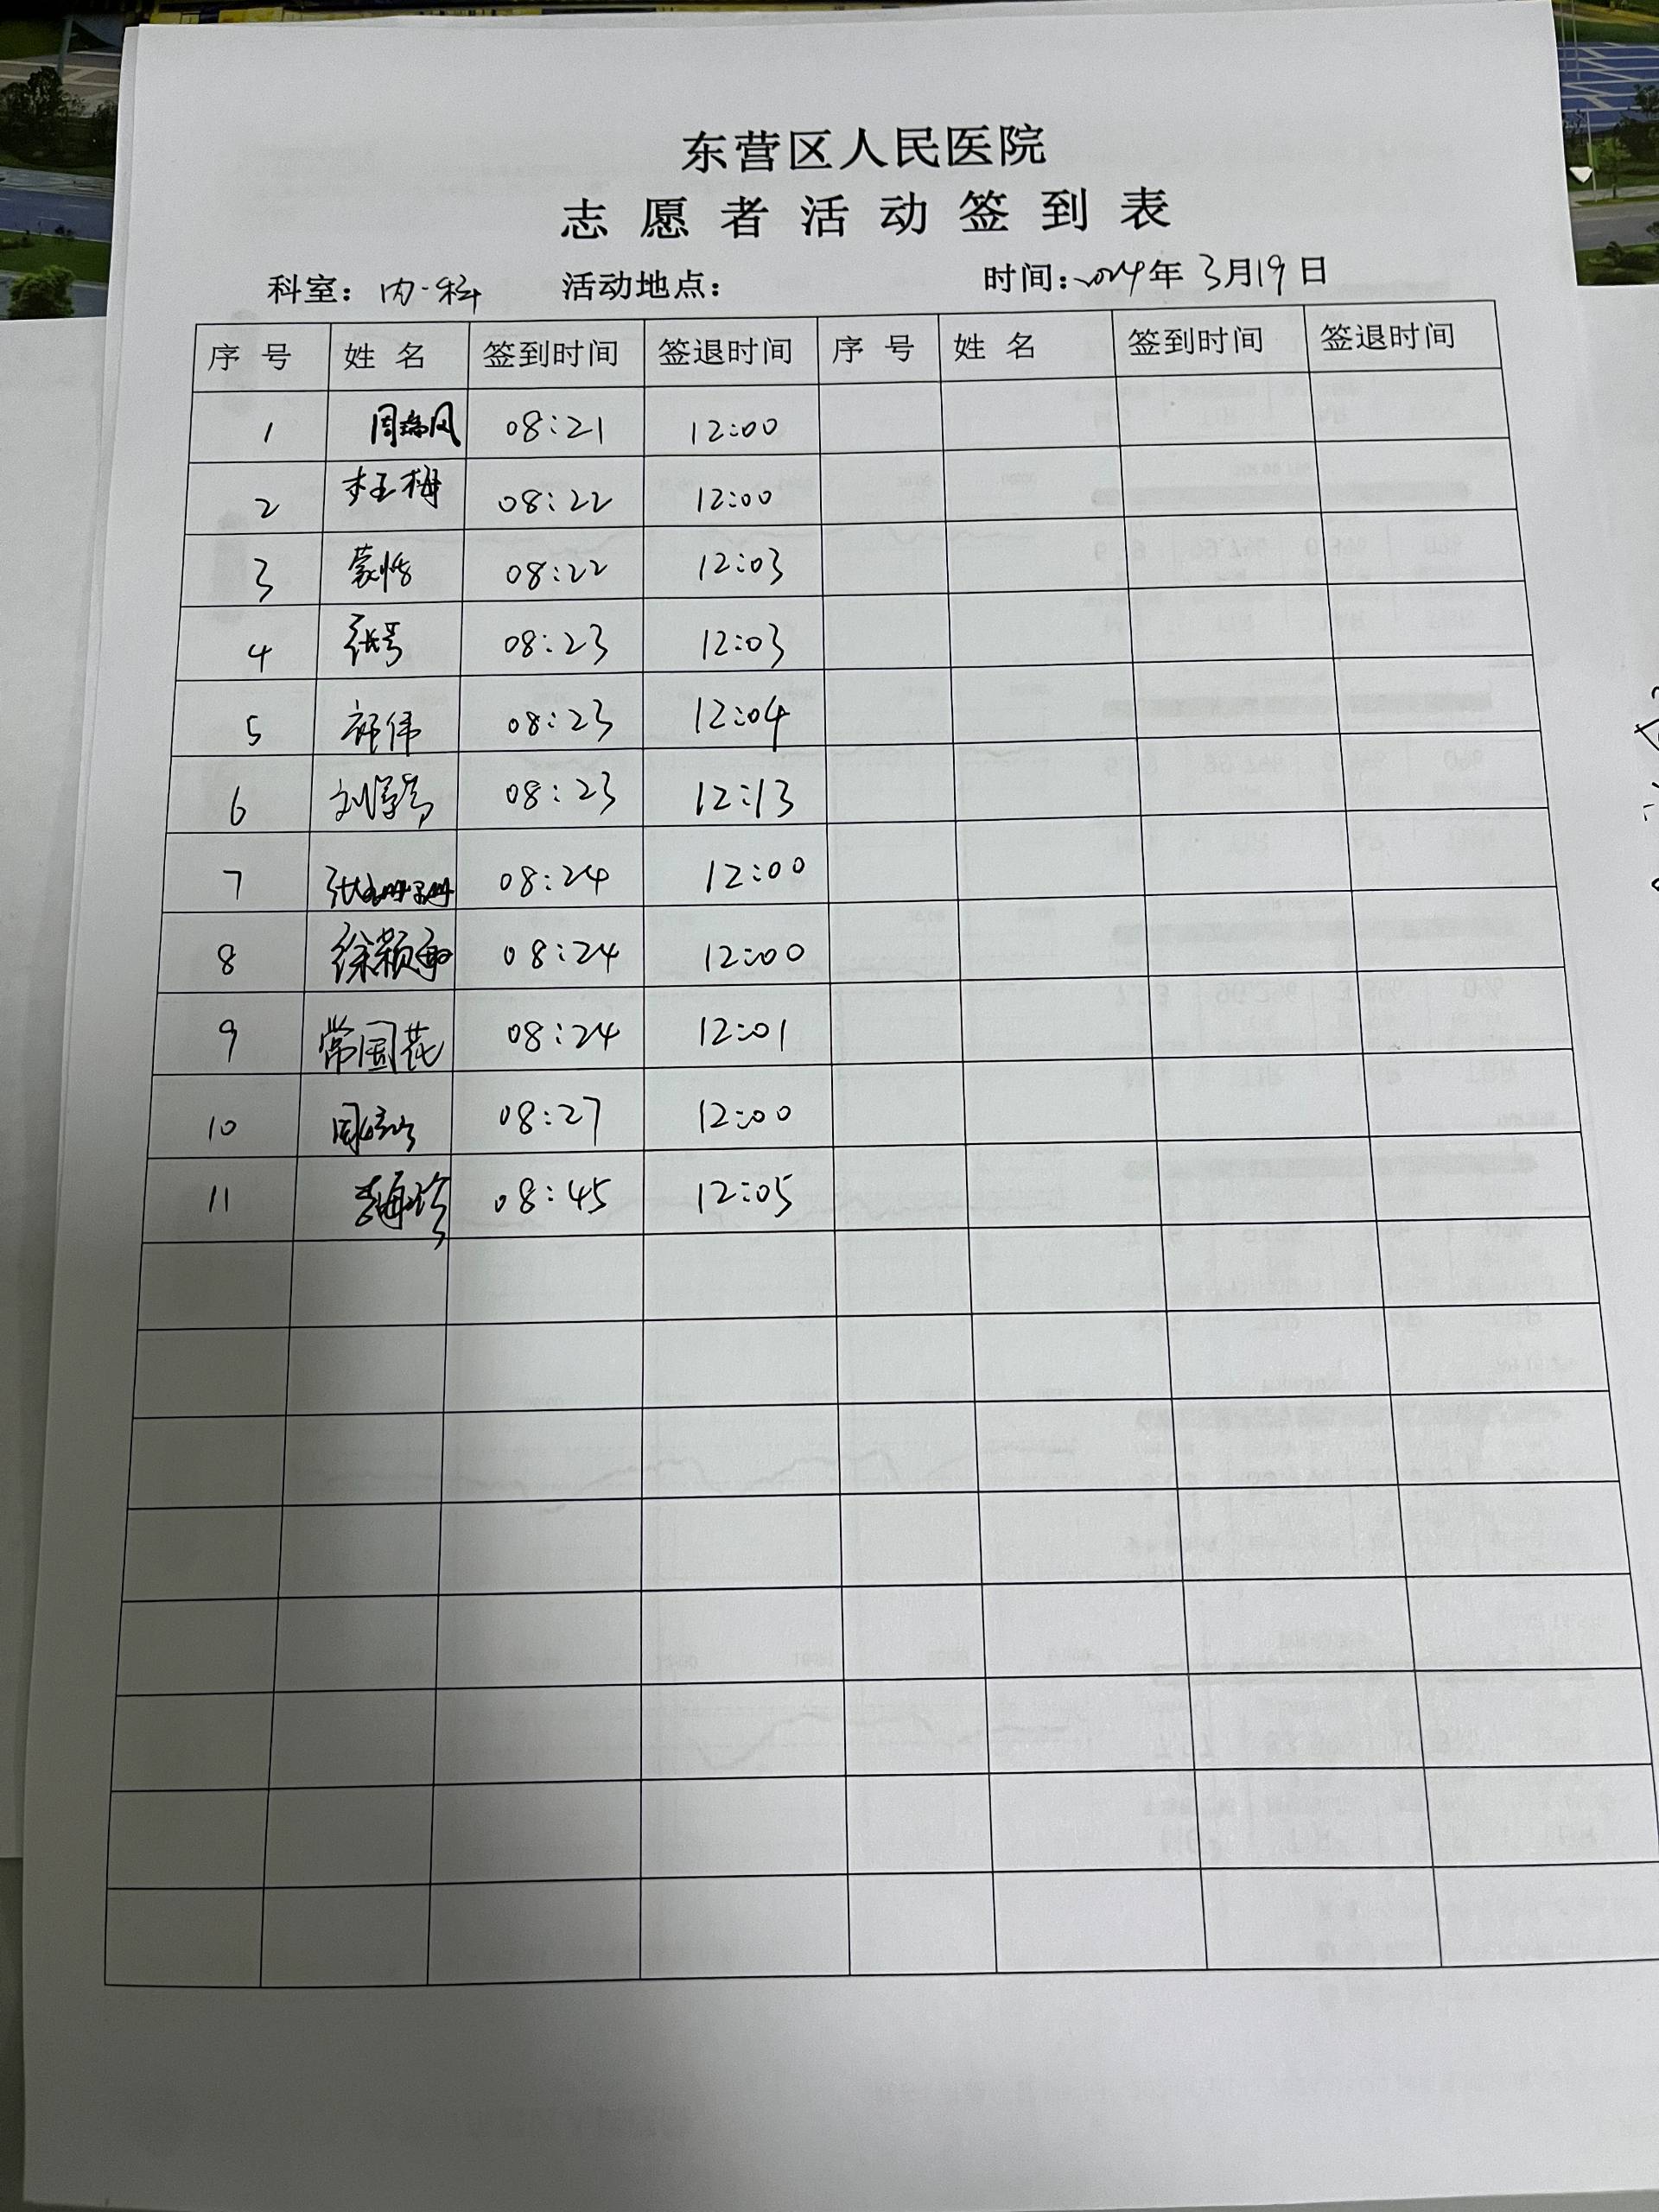 东营区人民医院
志愿者活动签到表
科室：内一科 活动地点： 时间：2024年3月19日
序号 姓名 签到时间 签退时间 序号 姓名 签到时间 签退时间
1 周瑞凤 08:21 12:00
2 杜玉梅 08:22 12:00
3 08:22 12:03
4 08:23 12:03
5 08:23 12:04
6 08:23 12:13
7 08:24 12:00
8 徐颖 08:24 12:00
9 常国花 08:24 12:01
10 08:27 12:00
11 李海珍 08:45 12:05